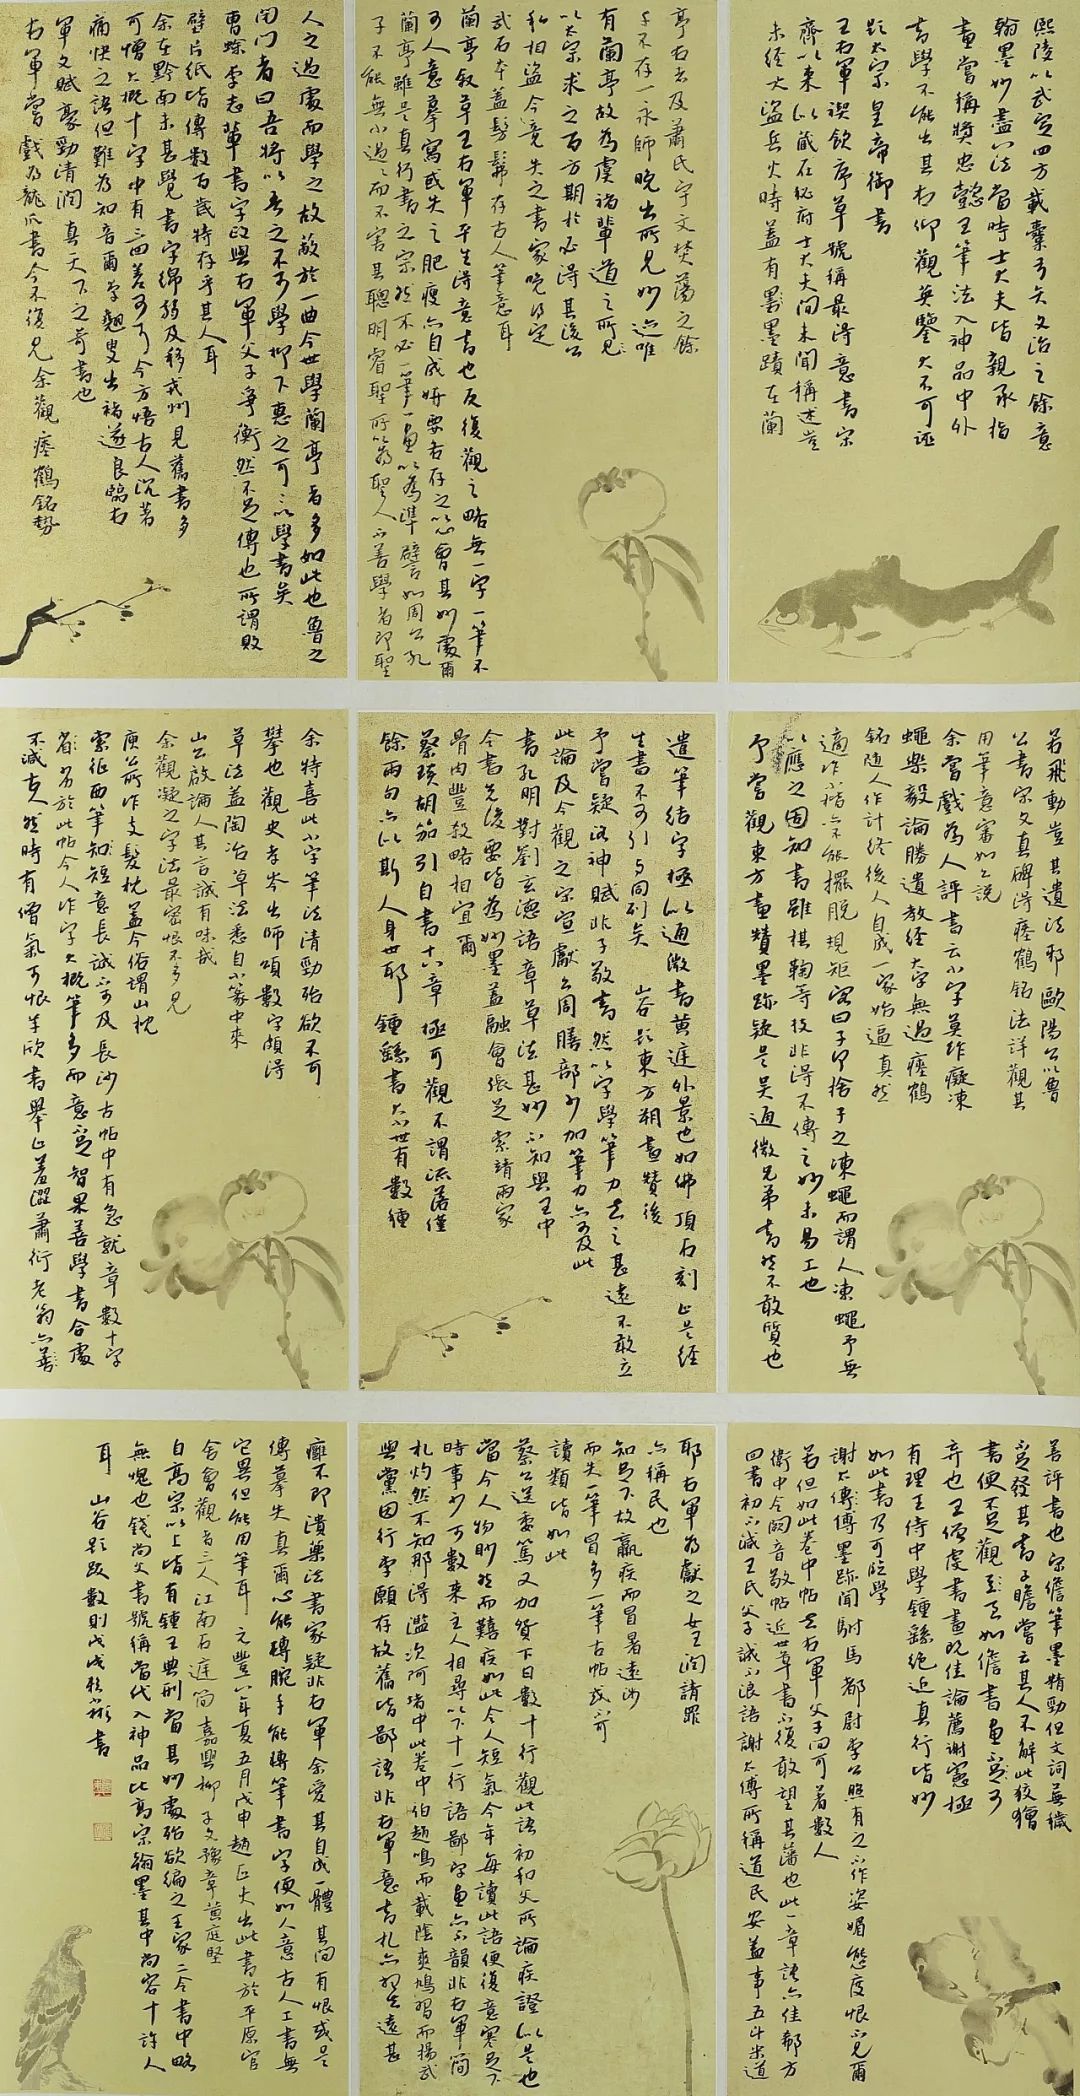 熙陵以武定四方載櫜弓矢文治之餘意
翰墨妙盡八法當時士大夫皆親承指
畫嘗稱獎忠懿王筆法入神品中外
書學不能出其右仰觀英鑒大不可誣
題太宗皇帝御書
王右軍禊飲序草號稱最得意書宋
齊以來以藏在祕府士大夫間未聞稱述豈
未經大盜兵火時蓋有墨蹟在蘭
亭右者及蕭氏宇文焚蕩之餘
千不存一永師晚出所見妙迹唯
有蘭亭故為虞褚輩道之所見
以太宗求之百方期於必得其後公
私相盜今竟失之書家晚得定
武石本蓋髣髴存古人筆意耳
蘭亭敘草王右軍平生得意書也反復觀之略無一字一筆不
可人意摹寫或失之肥瘦亦自成妍要各存之以心會其妙處爾
蘭亭雖是真行書之宗然不必一筆一畫以為準譬如周公孔
子不能無小過過而不害其聰明睿聖所以為聖人不善學者即聖
人之過處而學之故蔽於一曲今世學蘭亭者多如此也魯之
閉門者曰吾將以吾之不可學柳下惠之可可以學書矣
曹蜍李志輩書字政與右軍父子爭衡然不足傳也所謂敗
壁片紙皆傳數百歲特存乎其人耳
余在黔南未甚覺書字綿弱及移戎州見舊書多
可憎大概十字中有三四差可耳今方悟古人沉著
痛快之語但難為知音爾李翹叟出褚遂良臨右
軍文賦豪勁清潤真天下之奇書也
右軍嘗戲為龍爪書今不復見余觀瘞鶴銘勢
若飛動豈其遺法邪歐陽公以魯
公書宋文真碑得瘞鶴銘法詳觀其
用筆意審如公說
余嘗戲為人評書云小字莫作癡凍
蠅樂毅論勝遺教經大字無過瘞鶴
銘隨人作計終後人自成一家始逼真然
適作小楷亦不能擺脫規矩客曰子何捨子之凍蠅而謂人凍蠅予無
以應之固知書雖棋鞠等技非得不傳之妙未易工也
予嘗觀東方畫贊墨跡疑是吳通微兄弟書然不敢質也
遺筆結字極似通微書黃庭外景也如佛頂石刻止是經
生書不可引與同列矣 山谷題東方朔畫贊後
予嘗疑洛神賦非子敬書然以字學筆力去之甚遠不敢立
此論及今觀之宋宣獻公周膳部少加筆力亦可及此
書孔明對劉玄德語章草法甚妙不知與王中
令書先後要皆為妙墨蓋融會張芝索靖兩家
骨肉豐殺略相宜爾
蔡琰胡笳引自書十八章極可觀不謂流落僅
餘兩句亦以斯人身世耶 鍾繇書大小世有數種
余特喜此小字筆法清勁殆欲不可
攀也觀史孝岑出師頌數字頗得
草法蓋陶冶草法悉自小篆中來
山公啟論人其言誠有味哉
余觀凝之字法最密恨不多見
庾公所作支髮枕蓋今俗謂山枕
索征西筆短意長誠不可及長沙古帖中有急就章數十字
劣於此帖今人作字大概筆多而意不足智果善學書合處
不減古人然時有僧氣可恨羊欣書舉止羞澀蕭衍老翁亦善
善評書也宋儋筆墨精勁但文詞蕪穢
不足發其書子瞻嘗云其人不解此狡獪
書便不足觀至如儋書畫不可
棄也王僧虔書畫既佳論薦謝憲極
有理王侍中學鍾繇絕近真行皆妙
如此書乃可臨學
謝太傅墨跡聞駙馬都尉李公照有之不作姿媚態度恨不見爾
若但如此卷中帖去右軍父子間可著數人
衛中令闕音敬帖近世草書不復敢望其藩也此一章語亦佳郗方
回書初不減王氏父子誠不浪語謝太傅所稱道民安蓋事五斗米道
耶右軍為獻之女玉潤請罪
亦稱民也
知足下故羸疾而冒暑遠涉
而失一筆冒多一筆古帖或不可
讀類皆如此
蔡公遂委篤又加癈下日數十行觀此語初和父所論疾證似是也
當今人物眇然而艱疾如此令人短氣今年每讀此語便復意塞足下
時事少可數來主人相尋以下十一行語鄙字畫亦不韻非右軍簡
札灼然不知那得濫次阿堵中此卷中伯趙鳴而載陰爽鳩習而揚武
與黨因行李願存故舊皆鄙語非右軍意書札亦相去遠甚
癰不即潰藥法書家疑非右軍余愛其自成一體其間有恨或是
傳摹失真爾心能轉腕手能轉筆書字便如人意古人工書無
它異但能用筆耳 元豐八年夏五月戊申趙正夫出此書於平原官
舍會觀者三人江南石庭簡嘉興柳子文豫章黃庭堅
自高宗以上皆有鍾王典刑當其妙處殆欲編之王家二令書中略
無愧也錢尚父書號稱當代入神品比高宗翰墨其中尚容十許人
耳 山谷題跋數則戊戌 書